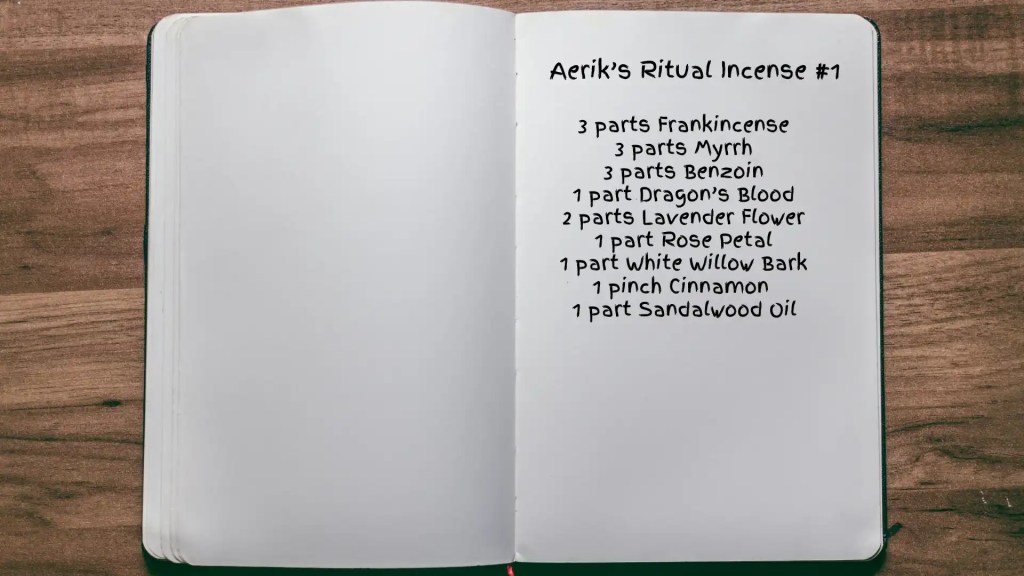 Aerik's Ritual Incense #1
3 parts Frankincense
3 parts Myrrh
3 parts Benzoin
1 part Dragon's Blood
2 parts Lavender Flower
1 part Rose Petal
1 part White Willow Bark
1 pinch Cinnamon
1 part Sandalwood Oil